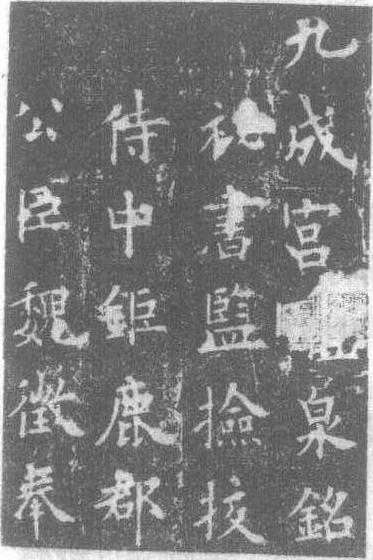 九成宮泉銘
秘書監撿挍
侍中鉅鹿郡
公臣魏徵奉